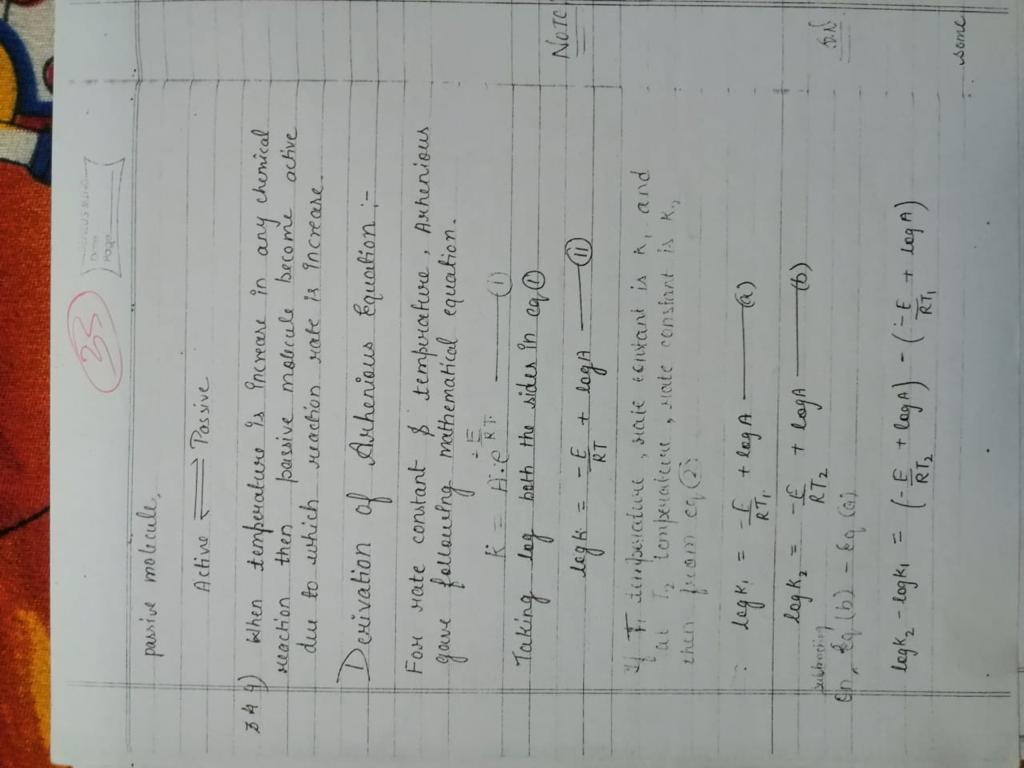 33
Date
Page
passive molecule.
Active ⇌ Passive
4) When temperature is Increase in any chemical
reaction then passive molecule become active
due to which reaction rate is Increase.
Derivation of Arrhenious Equation :-
For rate constant & temperature, Arrhenious
gave following mathematical equation.
K = A.e^(-E/RT) —— (1)
Taking log both the sides in eq (1)
logK = -E/RT + logA —— (11)
If T1 temperature, rate constant is K1 and
at T2 temperature, rate constant is K2
then from eq (2)
∴ logK1 = -E/RT1 + logA —— (a)
logK2 = -E/RT2 + logA —— (b)
On subtracting Eq (b) - Eq (a)
logK2 - logK1 = (-E/RT2 + logA) - (-E/RT1 + logA)
NOTE
Sol
some